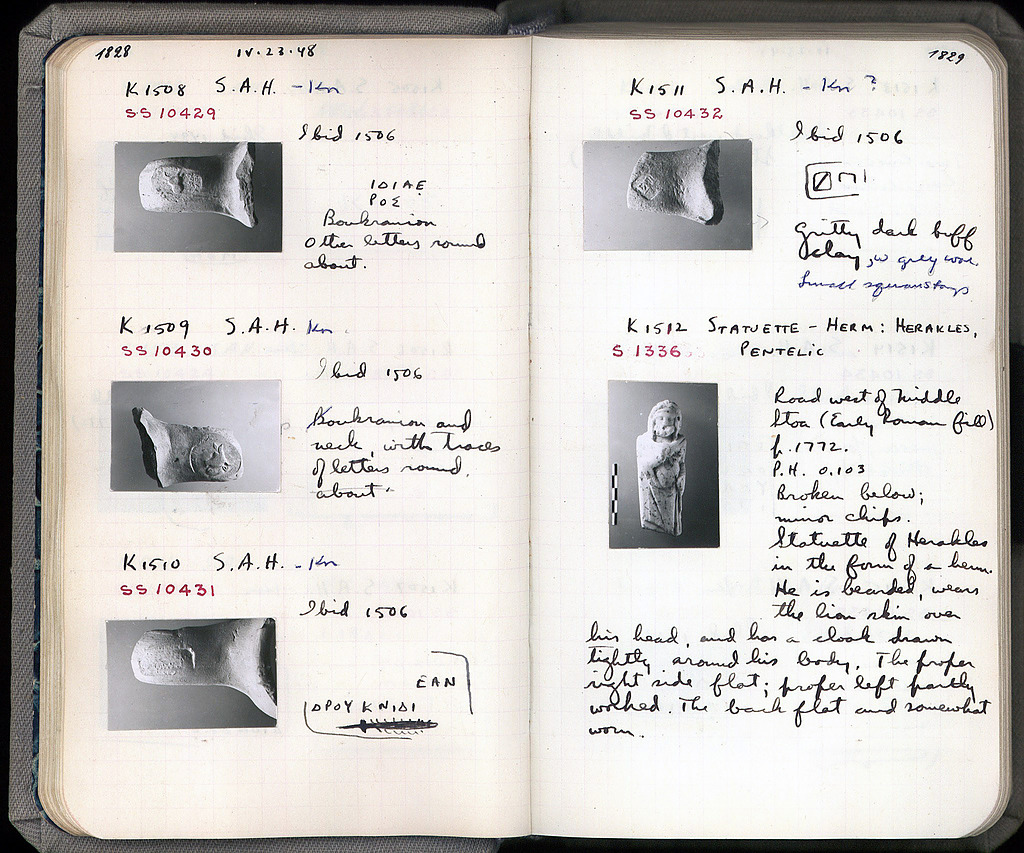 1828
IV·23·48
K 1508 S.A.H. - Kn
SS 10429
Ibid 1506
ΙΔΙΑΕ
ΡΟΣ
Boukranion
Other letters round
about.
K 1509 S.A.H. Kn.
SS 10430
Ibid 1506
Boukranion and
neck, with traces
of letters round,
about.
K 1510 S.A.H. - Kn
SS 10431
Ibid 1506
ΕΑΝ
ΔΡΟΥ ΚΝΙΔΙ
1829
K 1511 S.A.H. - Kn ?
SS 10432
Ibid 1506
Gritty dark buff
clay, w grey core.
Small square stamp
K 1512 STATUETTE - HERM: HERAKLES,
S 1336 PENTELIC
Road west of Middle
Stoa (Early Roman fill)
p. 1772.
P.H. 0.103
Broken below;
minor chips.
Statuette of Herakles
in the form of a herm.
He is bearded, wears
the lion skin over
his head, and has a cloak drawn
tightly around his body. The proper
right side flat; proper left partly
worked. The back flat and somewhat
worn.